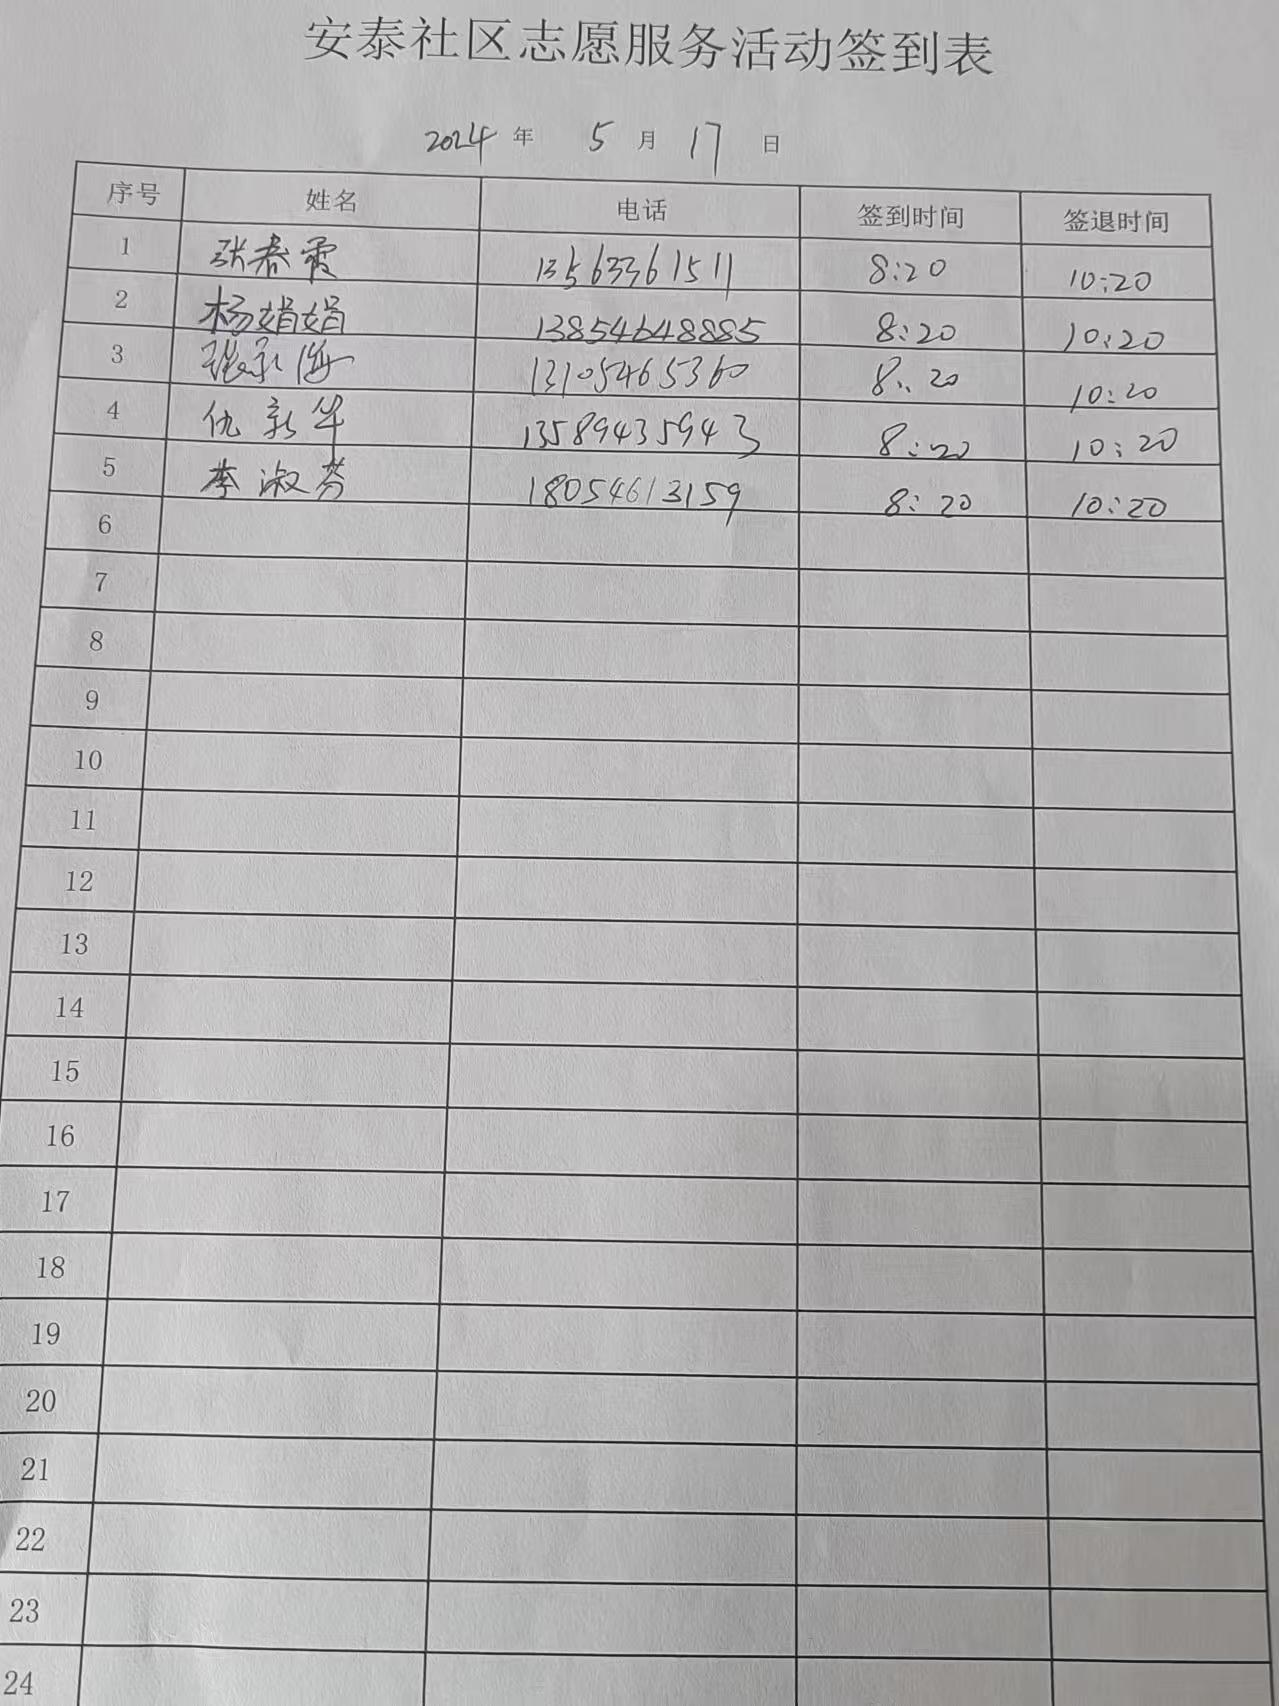 安泰社区志愿服务活动签到表
2024 年 5 月 17 日
序号 姓名 电话 签到时间 签退时间
1 张春霞 13563361511 8:20 10:20
2 杨娟娟 13854648885 8:20 10:20
3 张永海 13105465360 8:20 10:20
4 仇新华 13589435943 8:20 10:20
5 李淑芬 18054613159 8:20 10:20
6
7
8
9
10
11
12
13
14
15
16
17
18
19
20
21
22
23
24